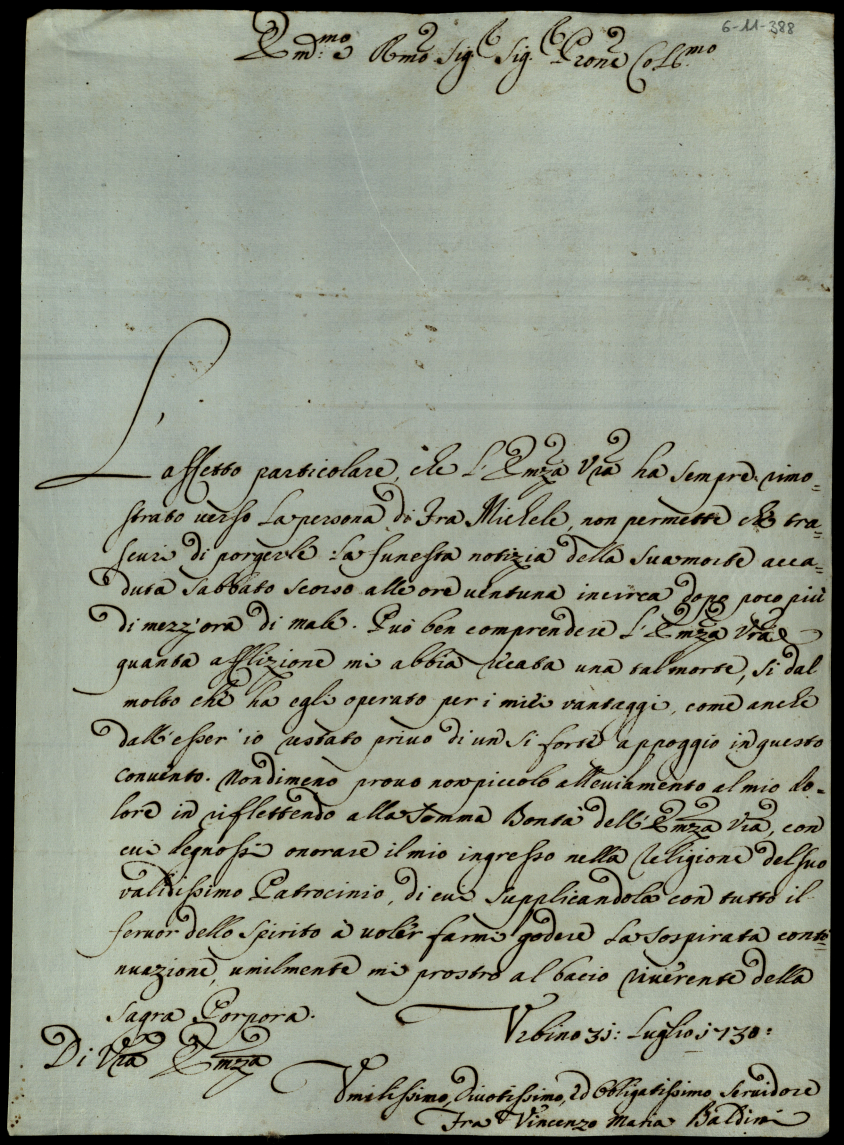 6-11-388
Emo. e Rmo Sigr. Sigr. Prone Collmo
L'affetto particolare, che l'Emza Vra ha sempre dimo=
strato verso la persona di Fra Michele, non permette che tra=
scuri di porgerle la funesta notizia della sua morte acca=
duta Sabbato scorso alle ore ventuna incirca dopo poco più
di mezz'ora di male. Può ben comprendere l'Emza Vra
quanta afflizione mi abbia recata una tal morte, sì dal
molto che ha egli operato per i miei vantaggi, come anche
dall'esser' io restato privo di un sì forte appoggio in questo
convento. Nondimeno provo non piccolo alleviamento al mio do=
lore in riflettendo alla Somma Bontà dell'Emza Vra, con
cui degnossi onorare il mio ingresso nella Religione del suo
validissimo Patrocinio, di cui supplicandola con tutto il
fervor dello Spirito à volèr farmi godere la sospirata conti=
nuazione, umilmente mi prostro al bacio riverente della
Sagra Porpora.
Urbino 31: Luglio 1730:
Di Vra Emza
Umilissimo, Divotissimo, ed Obligatissimo Servidore
Fra Vincenzo Maria Baldini